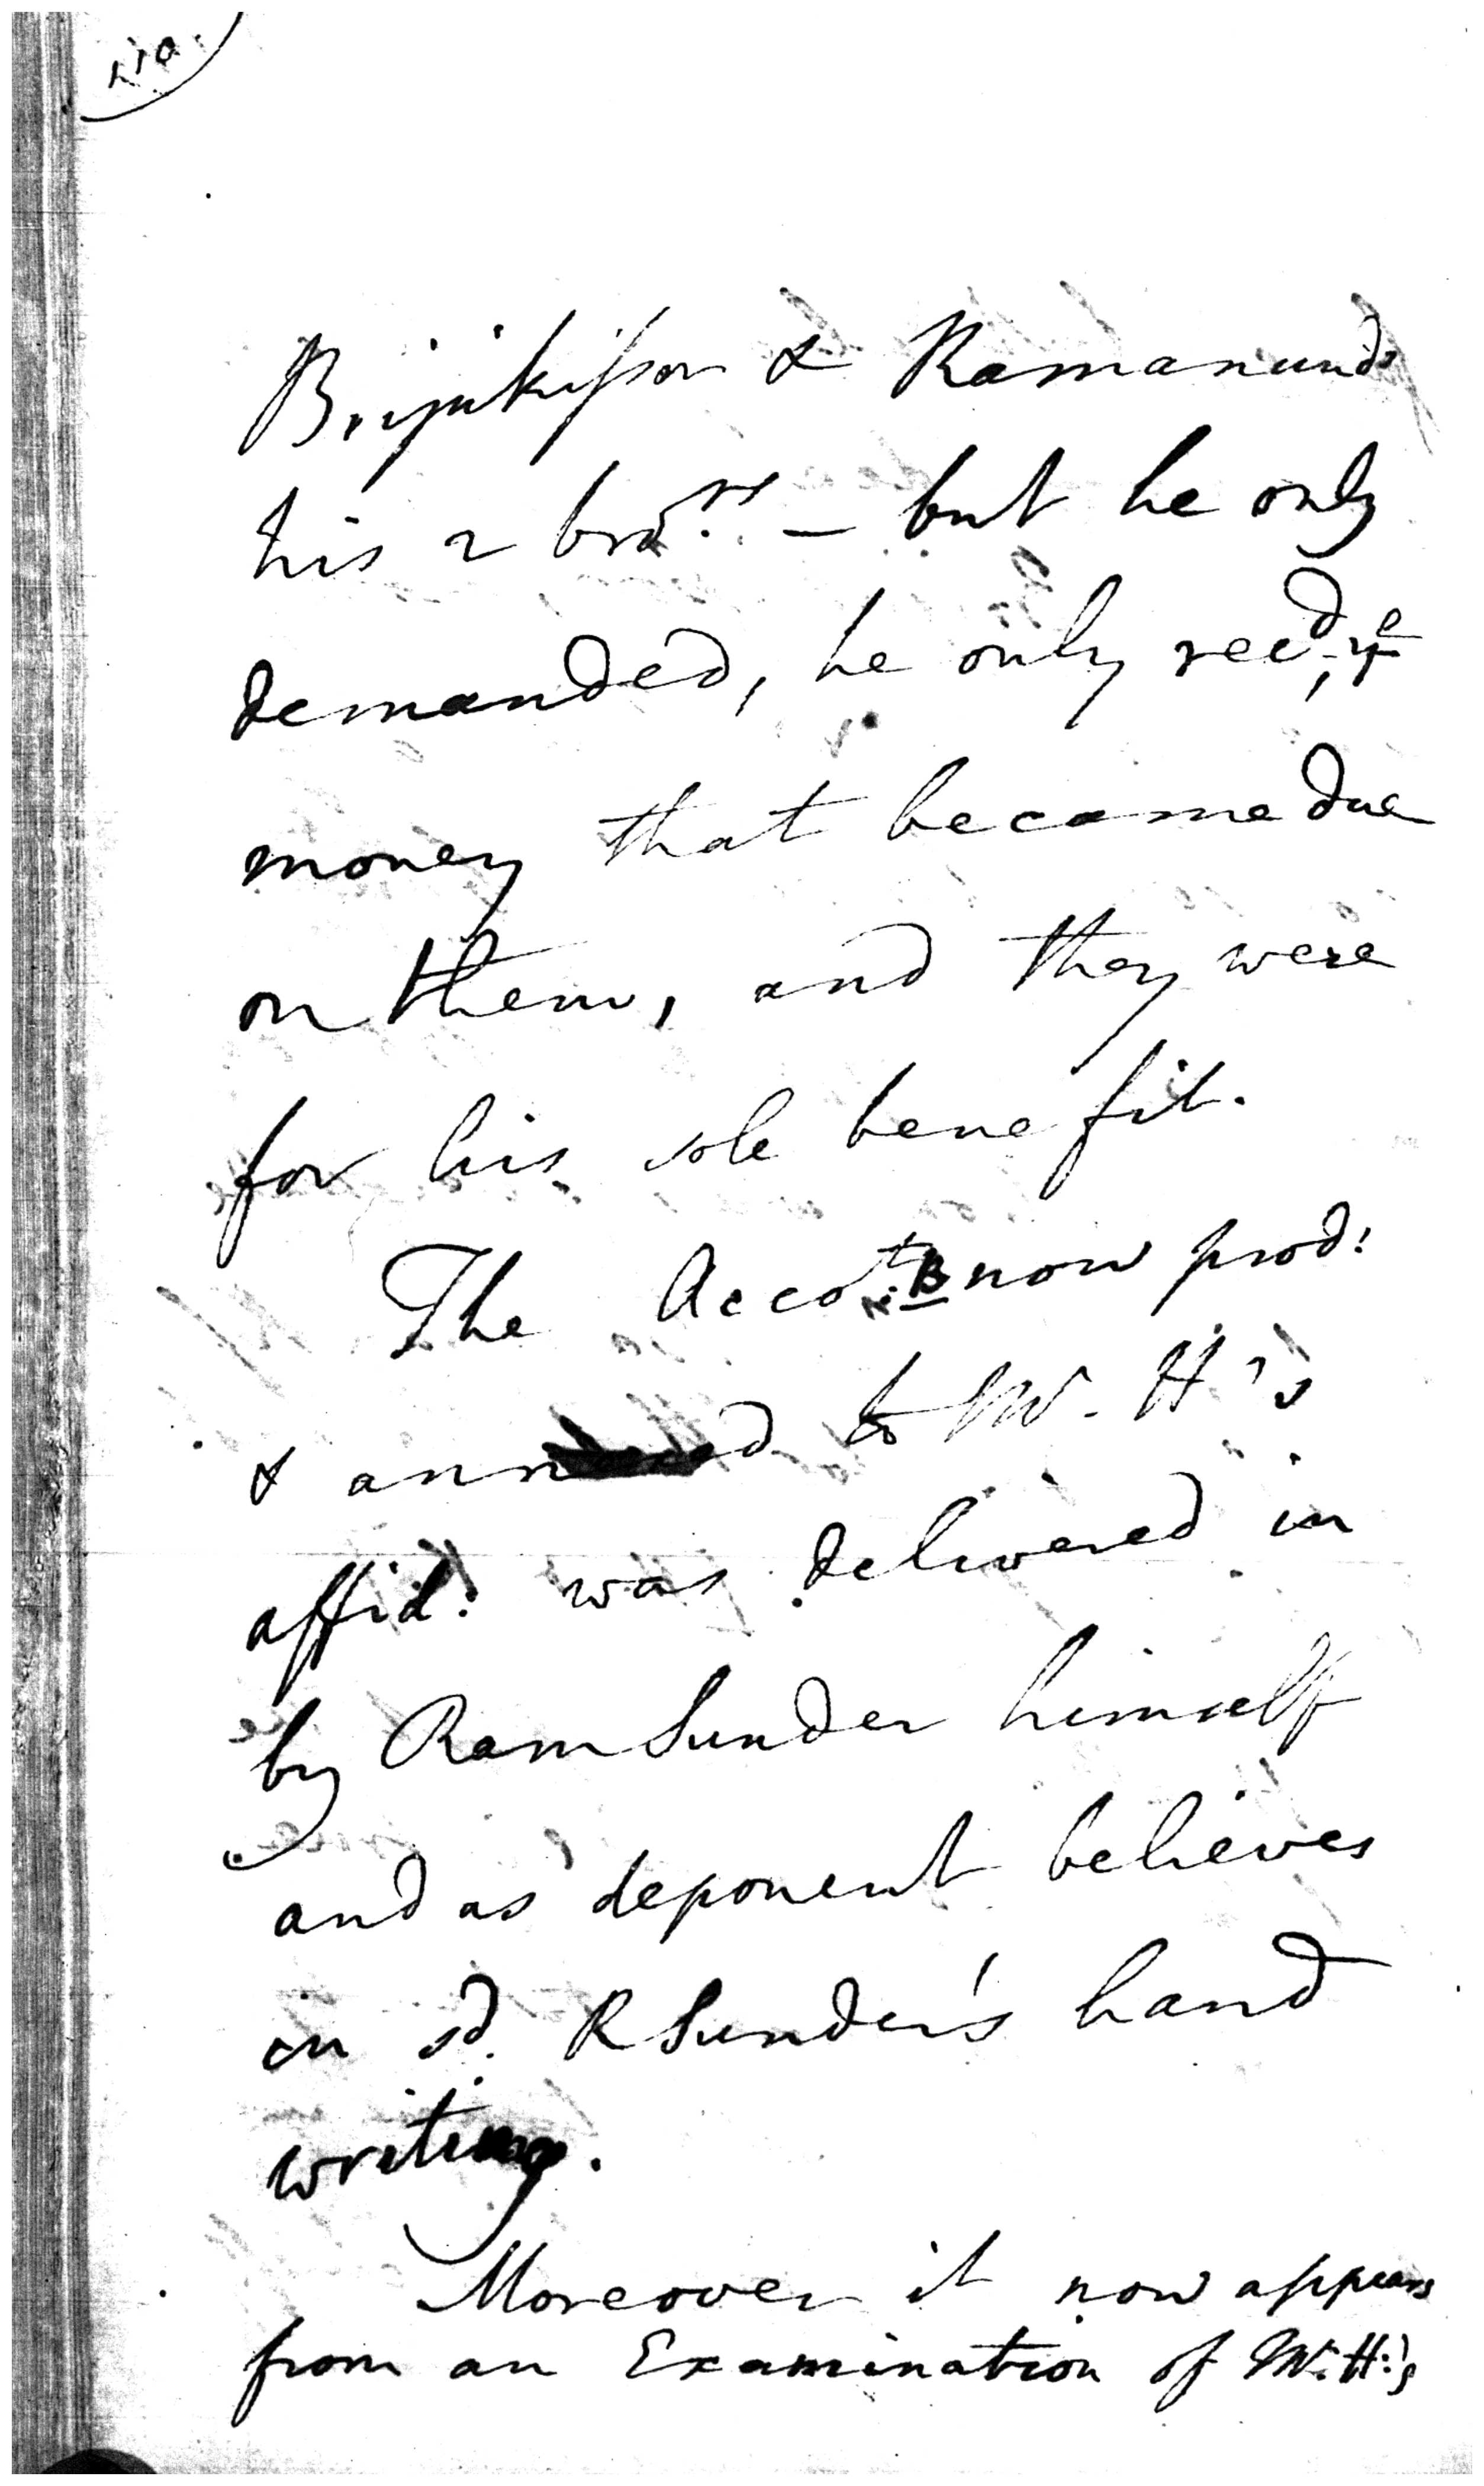 Brijukissor & Ramanund
his 2 bro.rs — but he only
demanded, he only recd, ye
money that became due
on them, and they were
for his sole benefit.
The Accot. B now prod:
& annexed to W. H's
affid: was delivered in
by Ram Sunder himself
and as deponent believes
in sd. R Sunder's hand
writing.
Moreover it now appears
from an Examination of W. H:'s